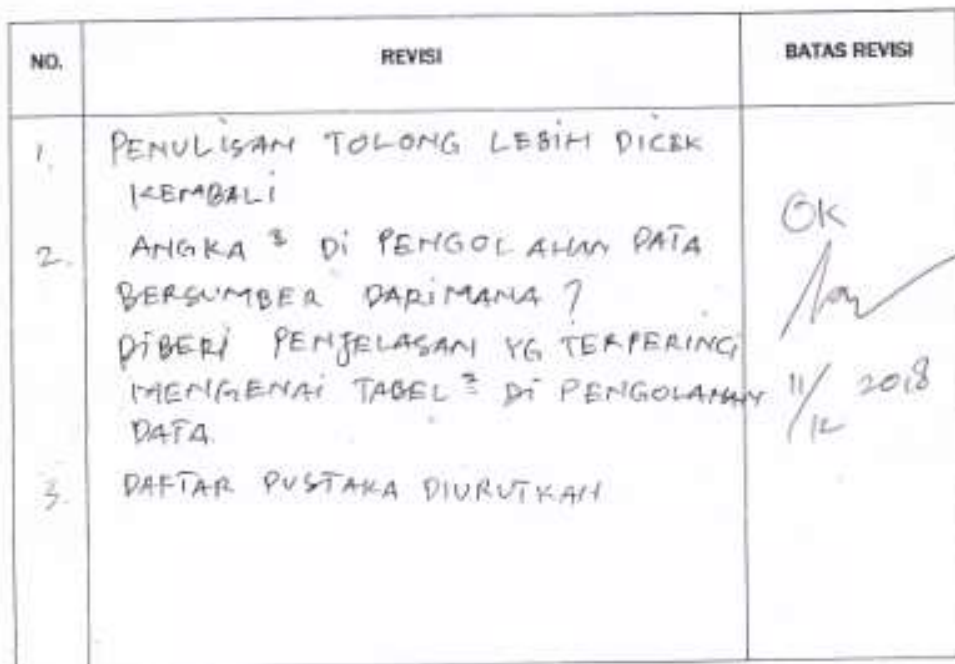 NO. REVISI BATAS REVISI
1. PENULISAN TOLONG LEBIH DICEK
KEMBALI
2. ANGKA² DI PENGOLAHAN DATA
BERSUMBER DARIMANA ?
DIBERI PENJELASAN YG TERPERINCI
MENGENAI TABEL² DI PENGOLAHAN
DATA.
3. DAFTAR PUSTAKA DIURUTKAN
OK
11/12 2018